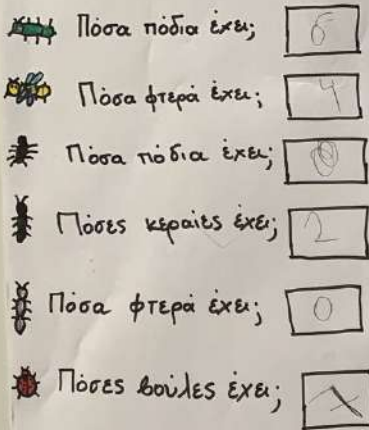 Πόσα πόδια έχει; 6
Πόσα φτερά έχει; 4
Πόσα πόδια έχει;
Πόσες κεραίες έχει; 2
Πόσα φτερά έχει; 0
Πόσες βούλες έχει;